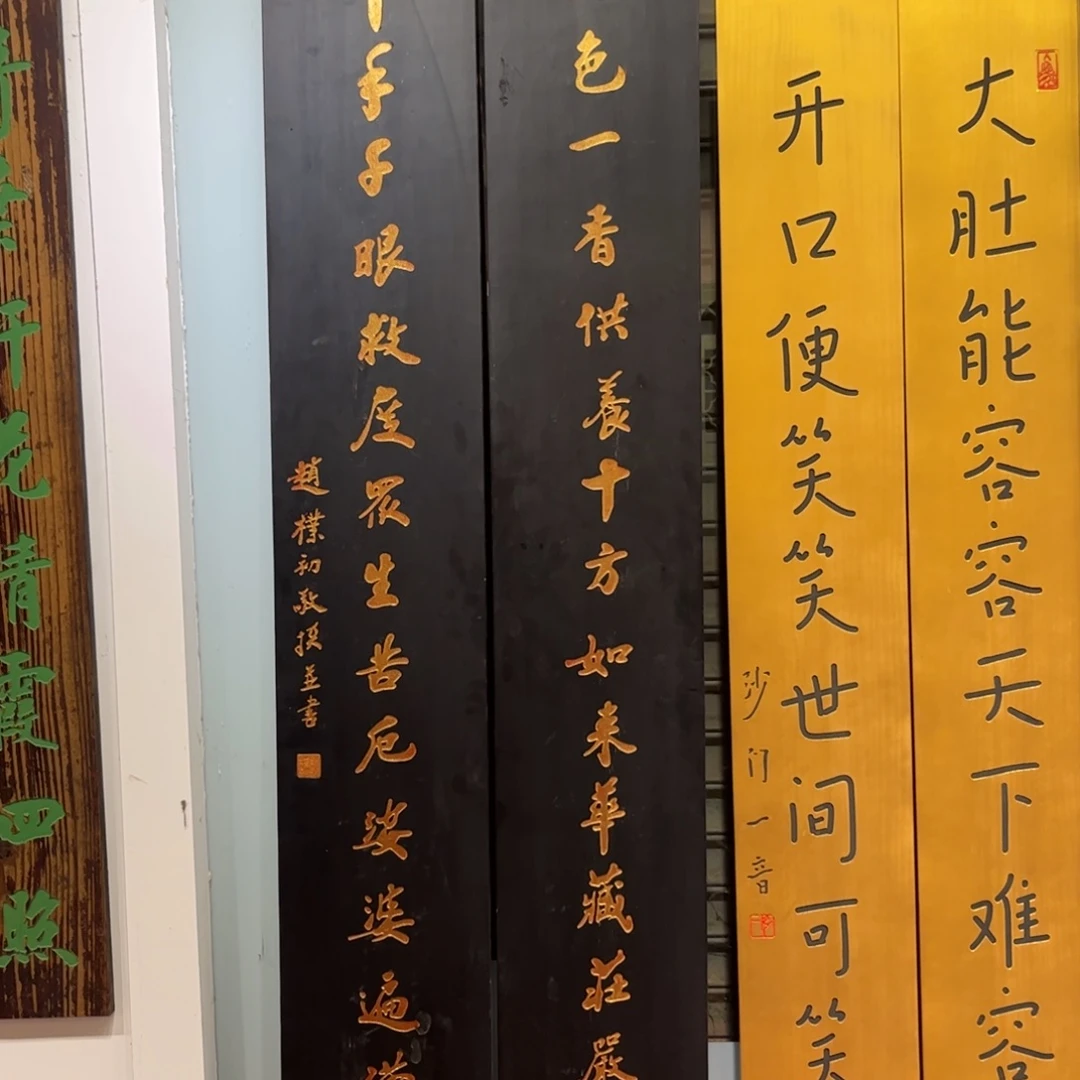 大肚能容容天下难容
开口便笑笑世间可笑
沙门一音
色一香供養十方如来華藏莊嚴
手千眼救度眾生苦厄娑婆遍
趙樸初敬撰並書
千花青霞四照